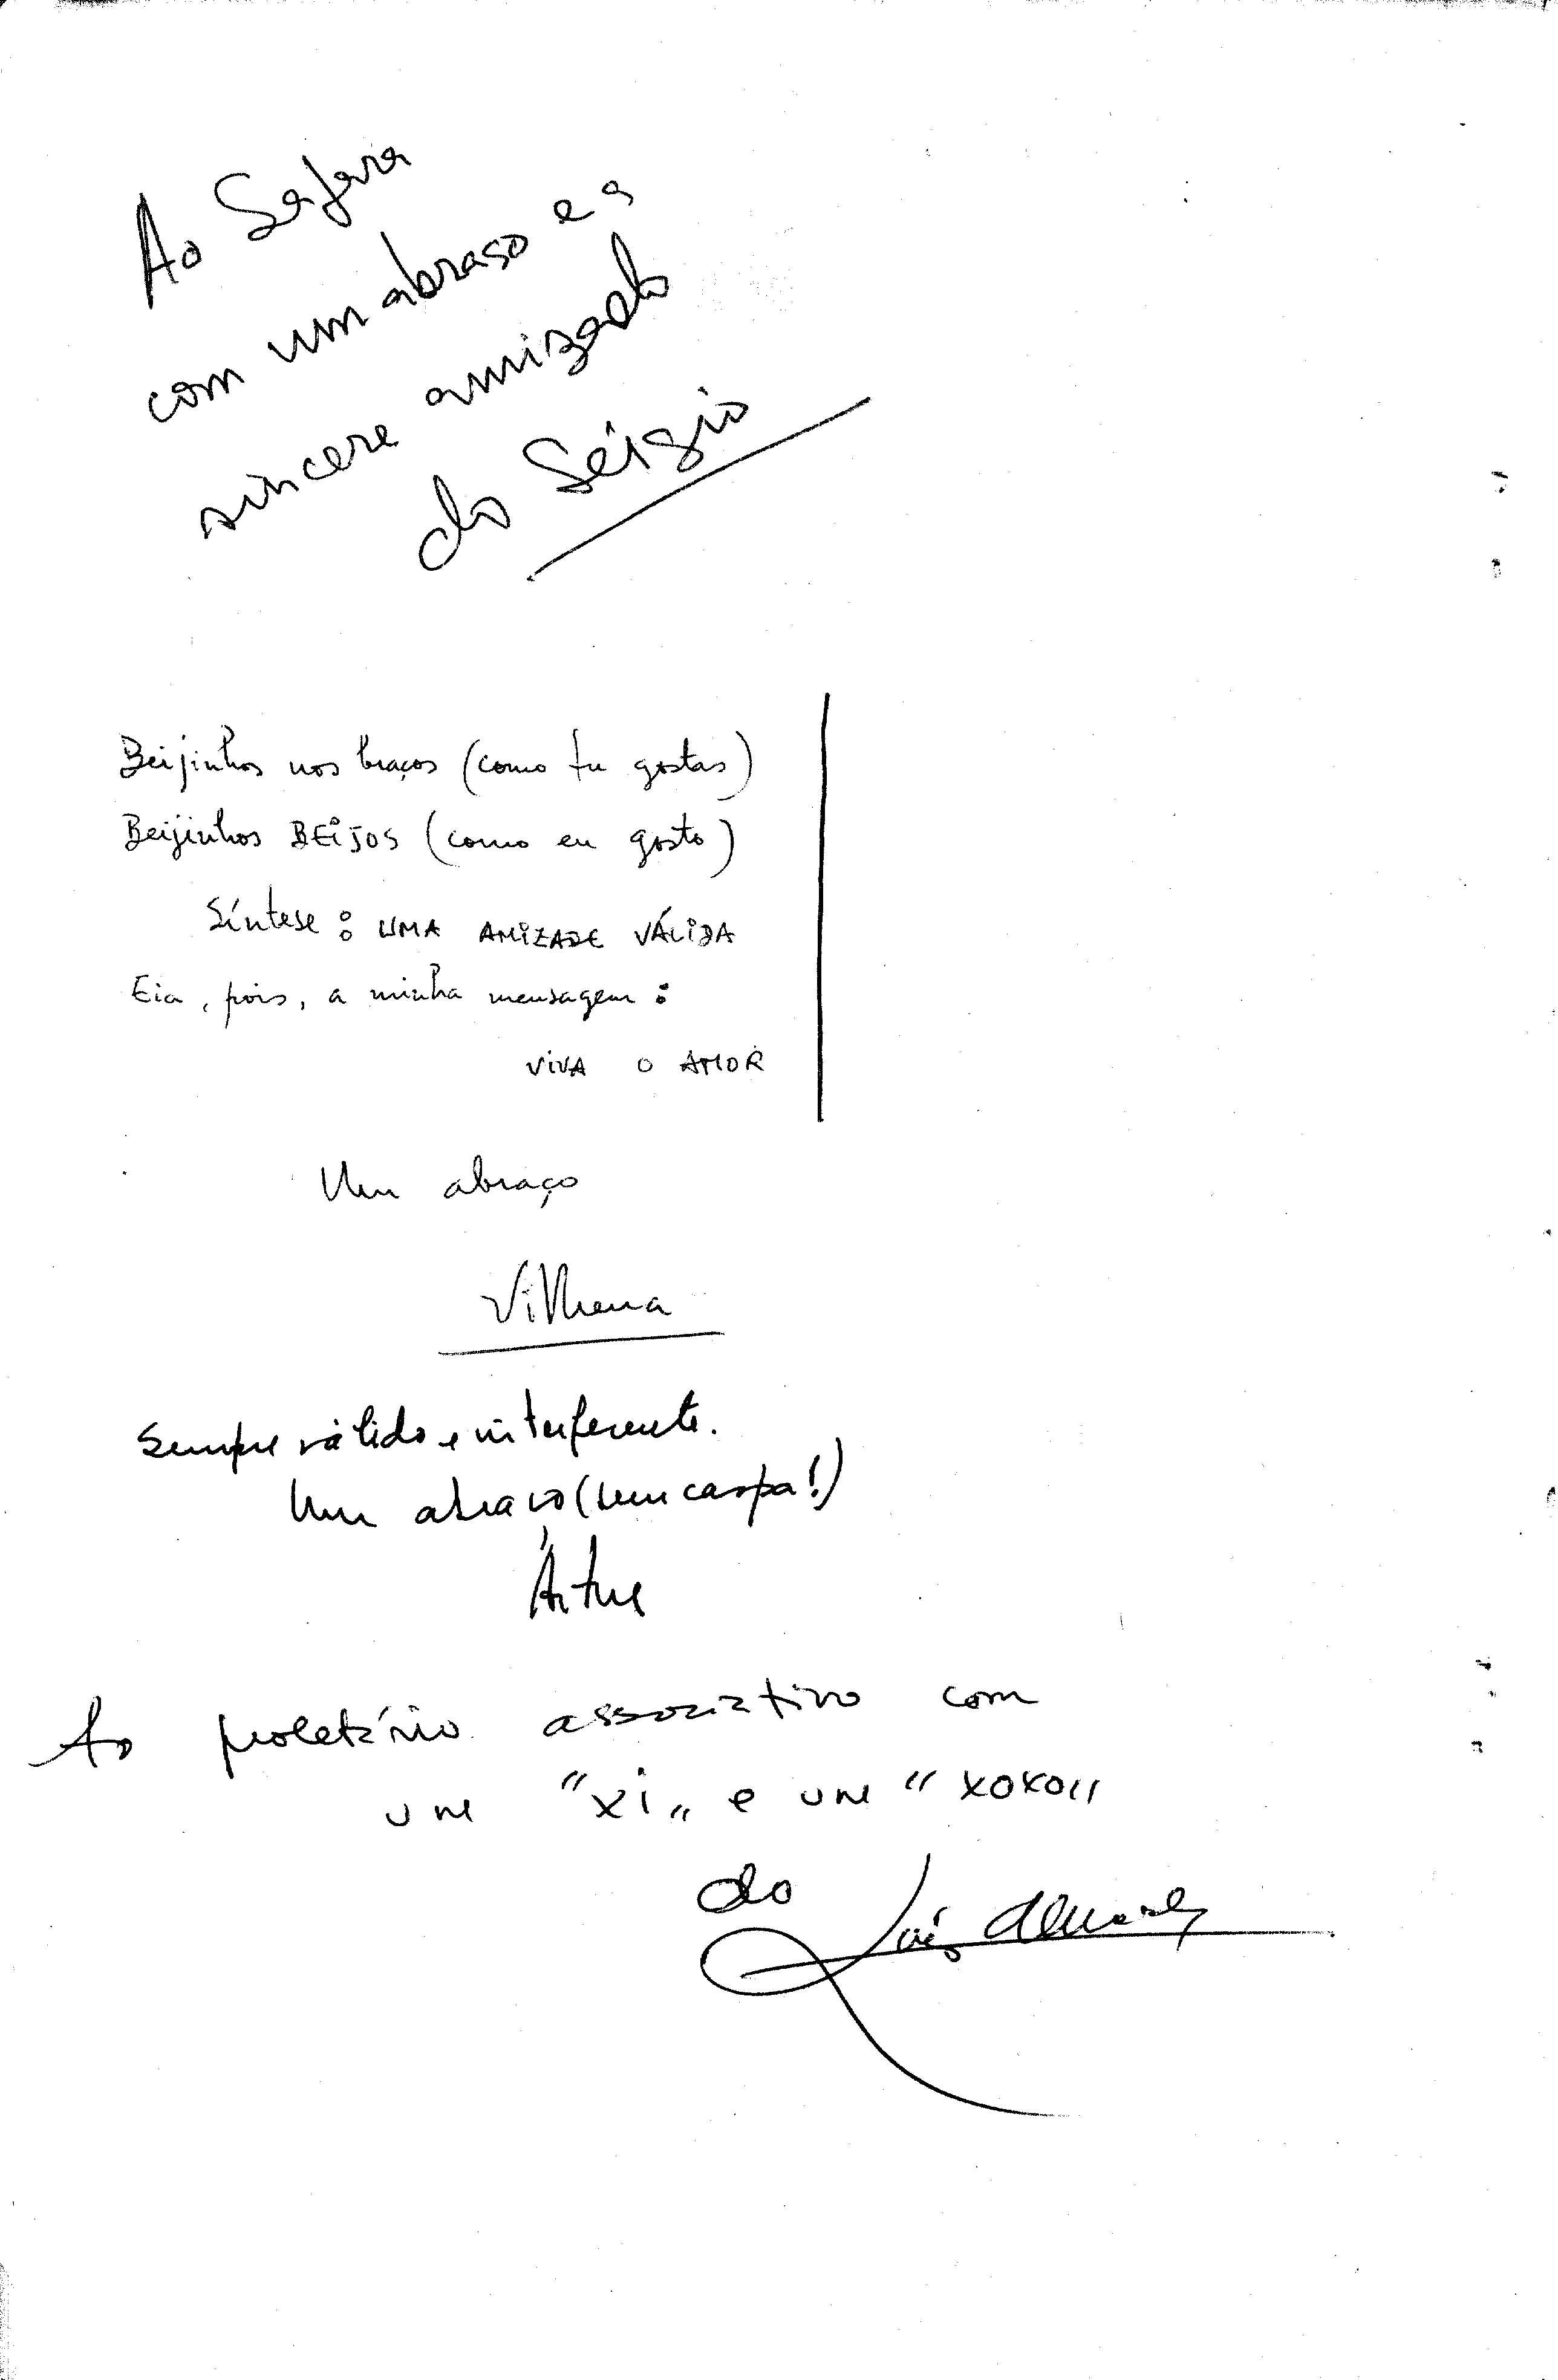 Ao Safara
com um abraço e a
sincera amizade
do Sérgio
Beijinhos nos braços (como tu gostas)
Beijinhos BEIJOS (como eu gosto)
Síntese : UMA AMIZADE VÁLIDA
Eia, pois, a minha mensagem :
VIVA O AMOR
Um abraço
Vilhena
Sempre válido e interferente.
Um abraço (sem caspa!)
Artur
Ao proletário associativo com
um "xi" e um "xoxo"
do Luís